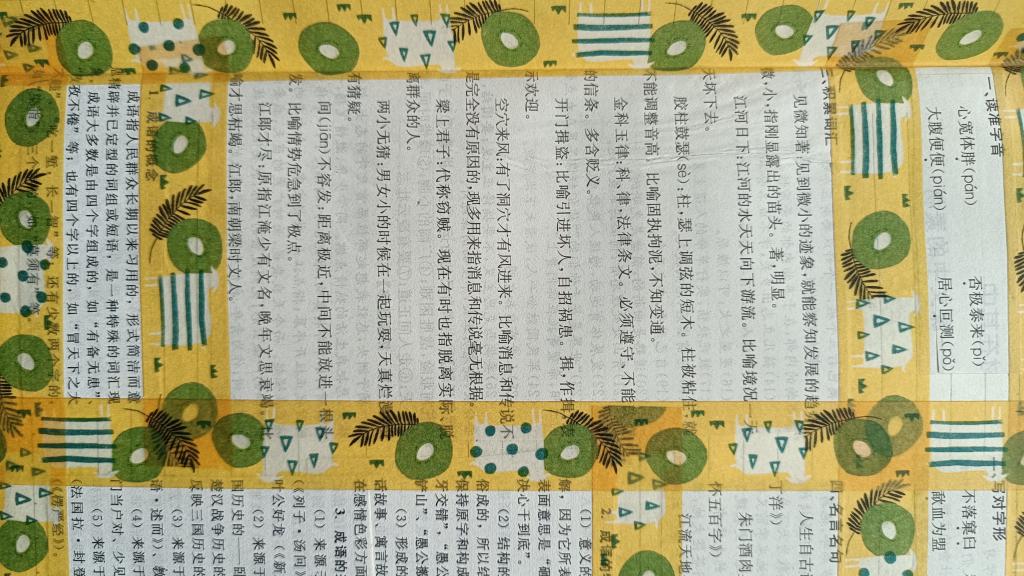 一、读准字音
心宽体胖(pán)
否极泰来(pǐ)
大腹便便(pián)
居心叵测(pǒ)
二、积累词汇
见微知著:见到微小的迹象,就能察知发展的趋
微,小,指刚显露出的苗头。著,明显。
江河日下:江河的水天天向下游流。比喻境况一天
天坏下去。
胶柱鼓瑟(sè):柱,瑟上调弦的短木。柱被粘住
不能调整音高。比喻固执拘泥,不知变通。
金科玉律:科、律,法律条文。必须遵守、不能
的信条。多含贬义。
开门揖盗:比喻引进坏人,自招祸患。揖,作揖
示欢迎。
空穴来风:有了洞穴才有风进来。比喻消息和传说不
是完全没有原因的,现多用来指消息和传说毫无根据。
梁上君子:代称窃贼。现在有时也指脱离实际、脱
离群众的人。
两小无猜:男女小的时候在一起玩耍,天真烂漫
有猜疑。
间(jiān)不容发:距离极近,中间不能放进一根头
发。比喻情势危急到了极点。
江郎才尽:原指江淹少有文名,晚年文思衰竭。比
喻才思枯竭。江郎,南朝梁时文人。
1. 成语的概念
成语指人民群众长期以来习用的,形式简洁而意
精辟并已定型的词组或短语,是一种特殊的词汇现
成语大多数是由四个字组成的,如“有备无患”
孜不倦”等;也有四个字以上的,如“冒天下之大
等,还有少数两个字的
写对字形
不落窠臼
歃血为盟
四、名言名句
人生自古
丁洋》)
朱门酒肉
怀五百字》)
江流天地
2. 成语
(1)意义的
解,因为它所表
表面意思是“砸
决心干到底。
(2)结构的
俗成的,所以结
保持原字和构成
牙交错”,“愚公
铲山”、“愚公搬
(3)形成的
话故事、寓言故
在感情色彩方面
3. 成语的
(1)来源
《列子·汤问》
叶公好龙(《新
(2)来源于
国历史的——卧
楚汉战争历史的
反映三国历史的
(3)来源于
语·述而》)、教
(4)来源于
门当户对、少见
(5)来源于
(法国拉·封登
(《楞严经》)。